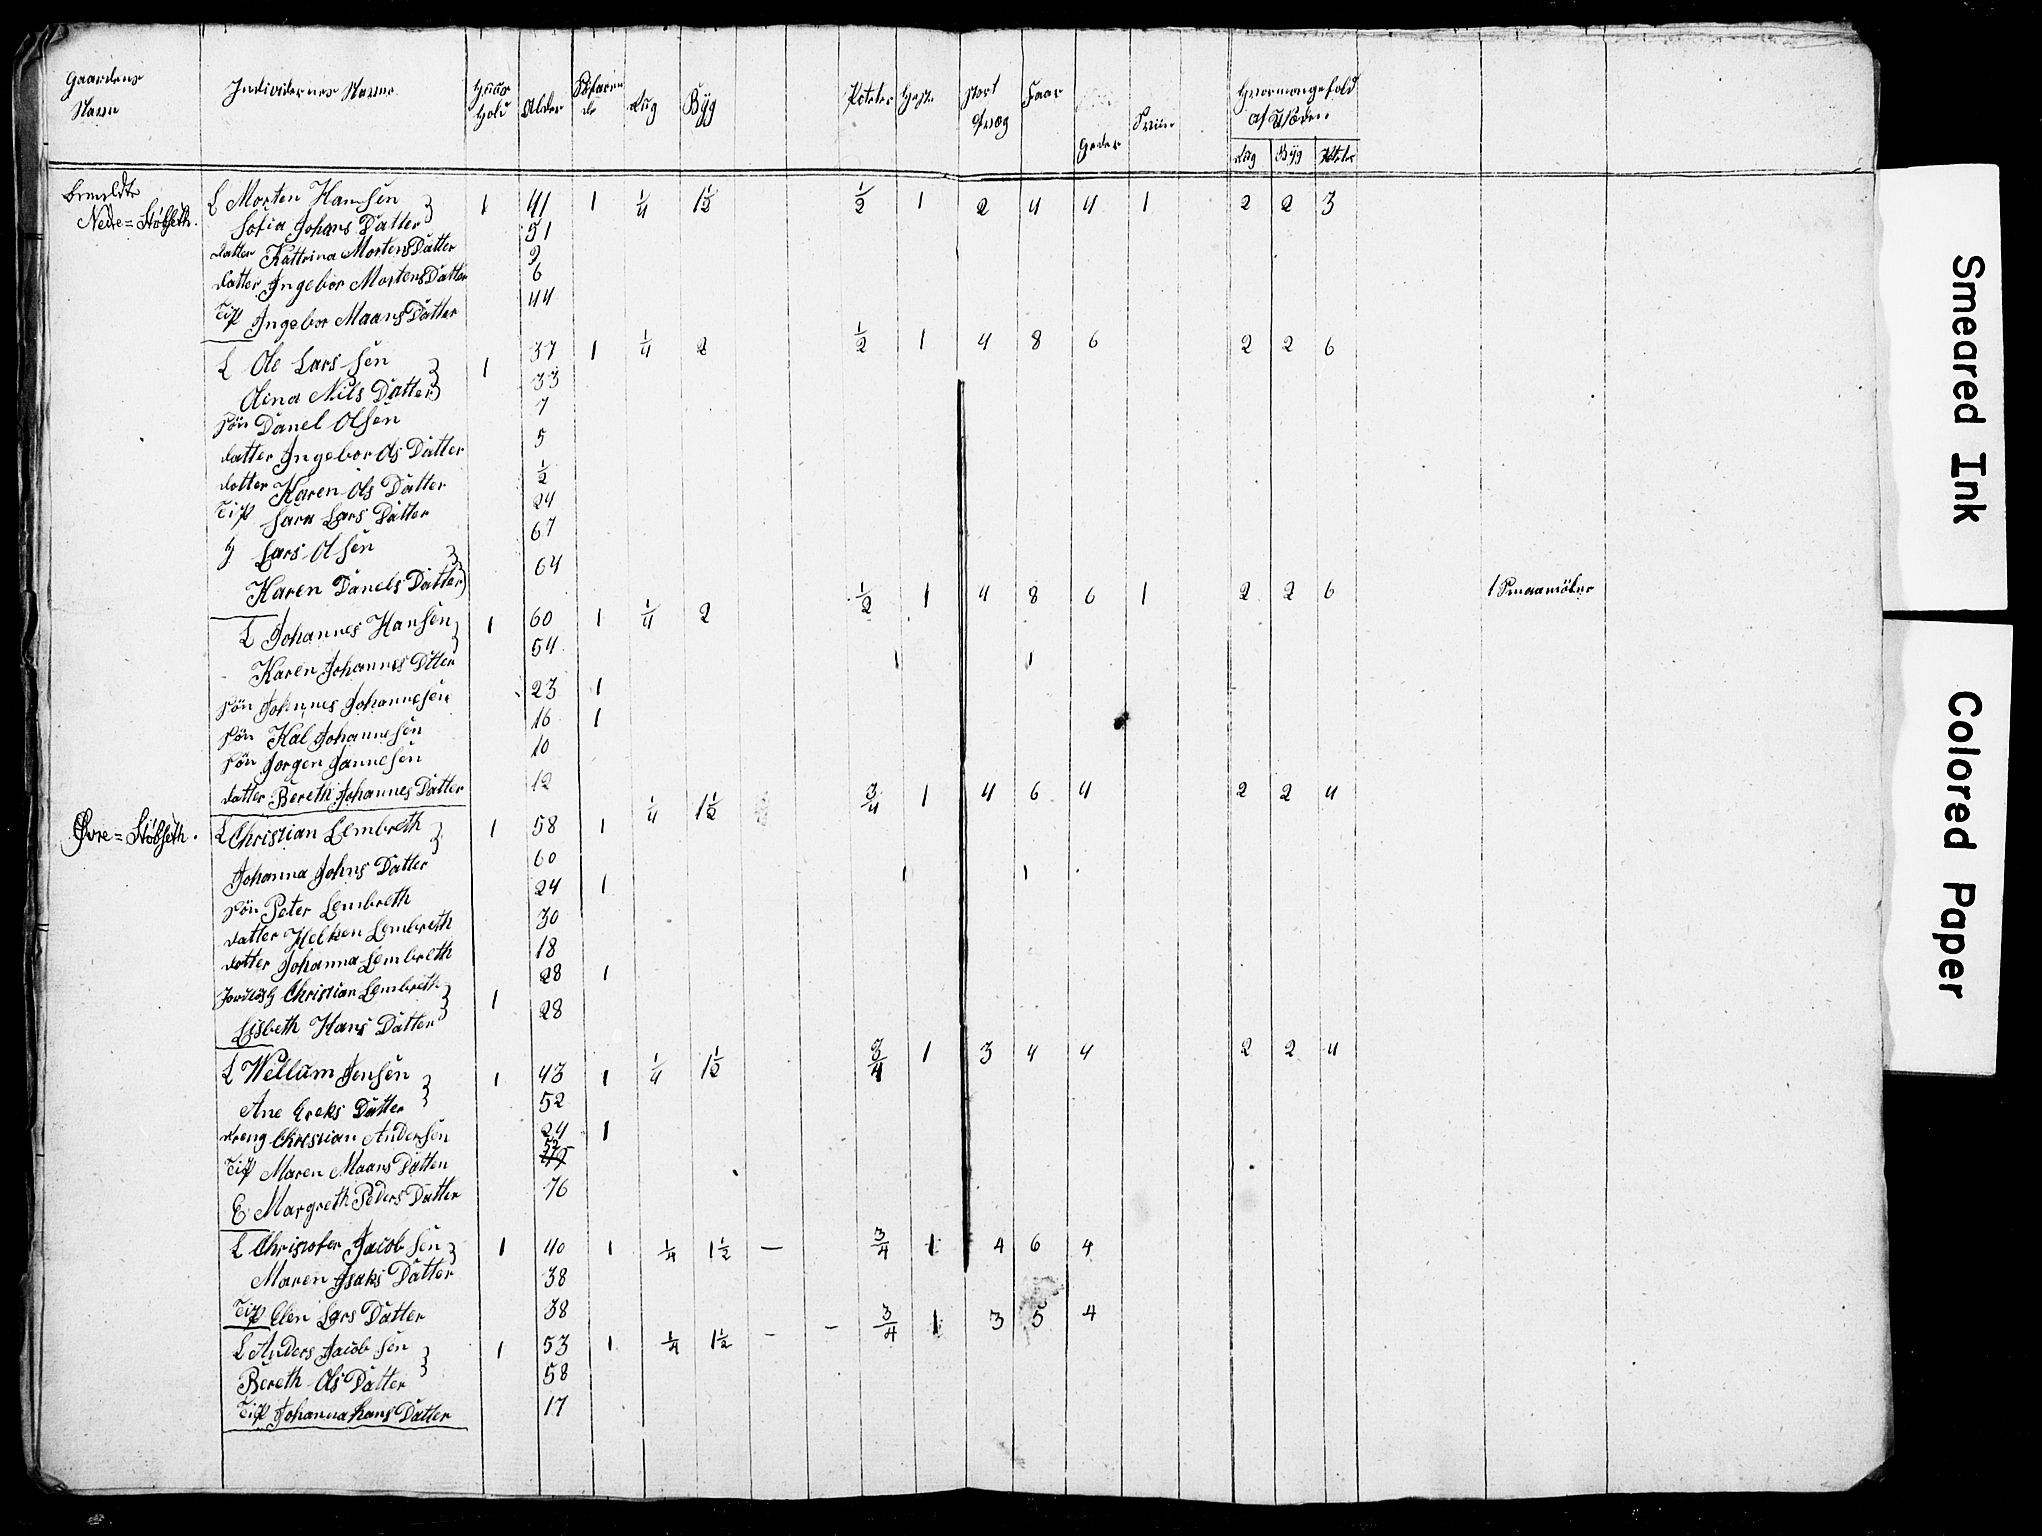 Gaardens Navn | Individernes Navne | Huus Hold | Alder | Söfarende | Rug | Byg | Poteter | Heste | stort Qvæg | Faar | Geder | Sviin | Hvormangefold af Uſæden: Rug | Byg | Poteter
Nedre=Stöbseth. L Morten Hansen } 1 41 1 1/4 1 1/2 1/2 1 2 4 4 1 2 2 3
Sofia Johans Datter 51
datter Kattrina Mortens Datter 9
datter Ingebor Mortens Datter 6
Tip Ingebor Maans Datter 44
L Ole Lars Sen } 1 37 1 1/4 2 1/2 1 4 8 6 2 2 6
Olina Nils Datter 33
søn Danel Olsen 7
datter Ingebor Ols Datter 5
datter Karen Ols Datter 1/2
Tip Sara Lars Datter 24
Lars Olsen } 67
Karen Danels Datter 64
L Johannes Hansen } 1 60 1 1/4 2 1/2 1 4 8 6 1 2 2 6 1
Karen Johannes Dtter 54 1 1
søn Johnnes Johannesen 23 1
søn Kal Johannesen 16 1
søn Jorgen Jannesen 10
datter Bereth Johannes Datter 12
Øvre=Stöbseth. L Christian Lembreth } 1 58 1 1/4 1 1/2 3/4 1 4 6 4 2 2 4
Johanna Johns Datter 60 1 1
søn Peter Lembreth 24 1
datter Helken Lembreth 30
datter Johanna Lembreth 18
Christian Lembreth } 1 28 1
Lisbeth Hans Datter 28
L Wellum Jensen } 1 43 1 1/4 1 1/2 3/4 1 3 4 4 2 2 4
Ane Ereks Datter 52
dreng Christian Andersen 24 1
Tip Maren Maans Datter 52
E Margreth Peders Datter 76
L Christofer Jacob Sen } 1 40 1 1/4 1 1/2 — 3/4 1 4 6 4
Maren Isaks Datter 38
Tip Elen Lars Datter 38
L Anders Jacob Sen } 1 53 1 1/4 1 1/2 - - 3/4 1 3 5 4
Bereth Ols Datter 58
Tip Johanna Hans Datter 17
Smeared Ink
Colored Paper